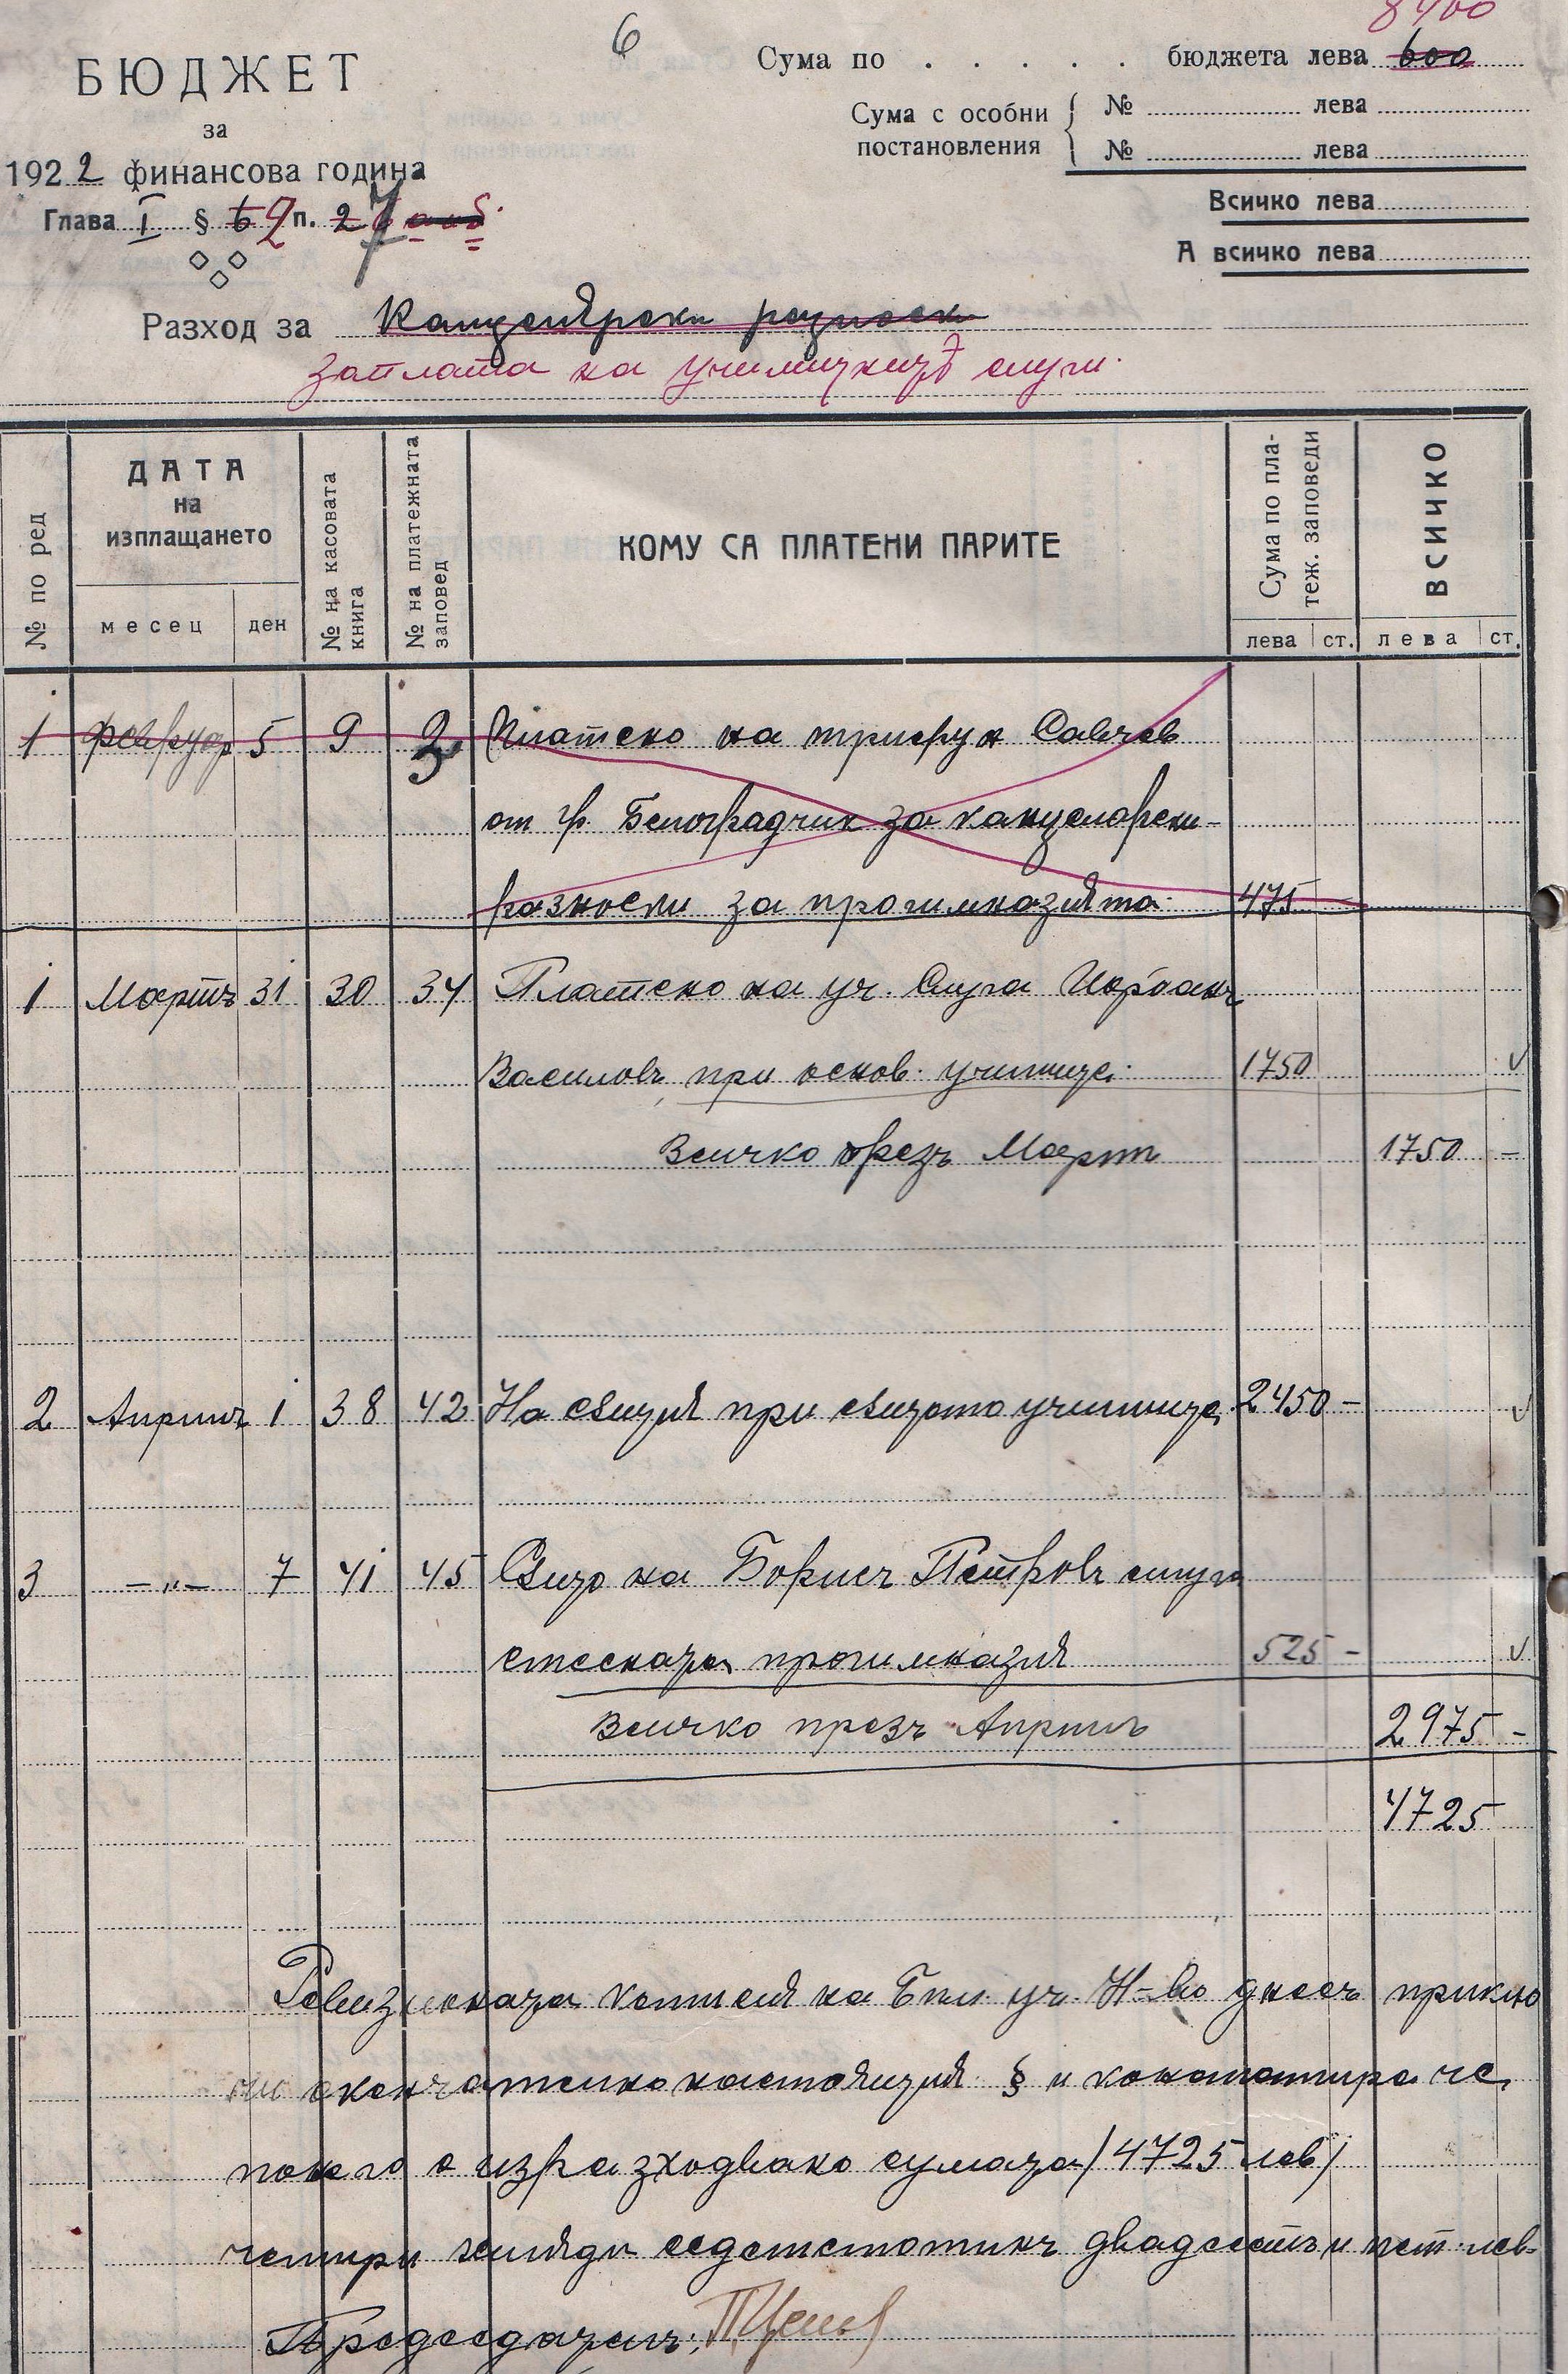 8400
6
БЮДЖЕТ
за
1922 финансова година
Глава I § 6 9 п. 2 7
Сума по . . . . . бюджета лева 600
Сума с особни постановления
№ лева
№ лева
Всичко лева
А всичко лева
Разход за Канцелярски разноски
заплата на училищнитѣ слуги.
№ по ред
ДАТА на изплащането
месец ден
№ на касовата книга
№ на платежната заповед
КОМУ СА ПЛАТЕНИ ПАРИТЕ
Сума по платеж. заповеди
лева ст.
ВСИЧКО
лева ст.
1 февруар 5 9 3 Платено на Трифун Савчев
от гр. Белоградчик за канцеларски
разноски за прогимназията 475
1 Мартъ 31 30 34 Платено на уч. слуга Иордан
Василовъ при основ. училище. 1750 √
Всичко презъ Март 1750 –
2 Априлъ 1 38 42 На сѫщия при сѫщото училище 2450 – √
3 – „ – 7 41 45 Сѫщо на Борисъ Петровъ слуга
прогимназия 525 – √
Всичко презъ Априлъ 2975 –
4725
Ревизионата комисия на уч. Н-во днесъ приклю
чи окончателно настоящия § и констатира че
по него е изразходвано сумата /4725 лев/
четири хиляди седемстотинъ двадесеть и пет лев.
Председателъ: